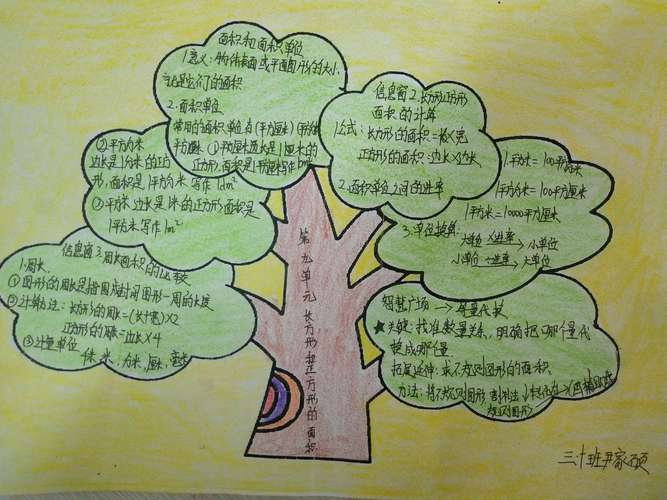 面积和面积单位
1.意义：物体表面或平面图形的大小
就是它们的面积
2.面积单位
常用的面积单位有(平方厘米)(平方分米)
平方米 ①平方厘米 边长是1厘米的
正方形,面积是1平方厘米 写作1cm²
②平方分米
边长是1分米的正方
形,面积是1平方分米 写作1dm²
③平方米 边长是1米的正方形面积是
1平方米写作1m²
信息窗2.长方形正方形
面积的计算
1.公式：长方形的面积=长×宽
正方形的面积=边长×边长
2.面积单位之间的进率
1平方米=100平方分米
1平方分米=100平方厘米
1平方米=10000平方厘米
3.单位换算:
大单位 ×进率→ 小单位
小单位 ÷进率→ 大单位
信息窗3.周长面积的比较
1.周长
①图形的周长是指围成封闭图形一周的长度
②计算方法：长方形的周长=(长+宽)×2
正方形的周长=边长×4
③计量单位
米、分米、厘米、毫米
智慧广场→等量代换
★关键:找准数量关系,明确把哪个量代
换成哪个量
拓展延伸:求不规则图形的面积
方法:将不规则图形 割补法
规则图形
第九单元 长方形和正方形的面积
三十班尹家硕